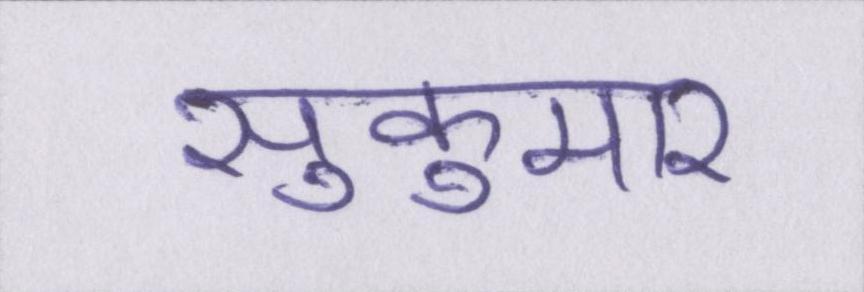 सुकुमार